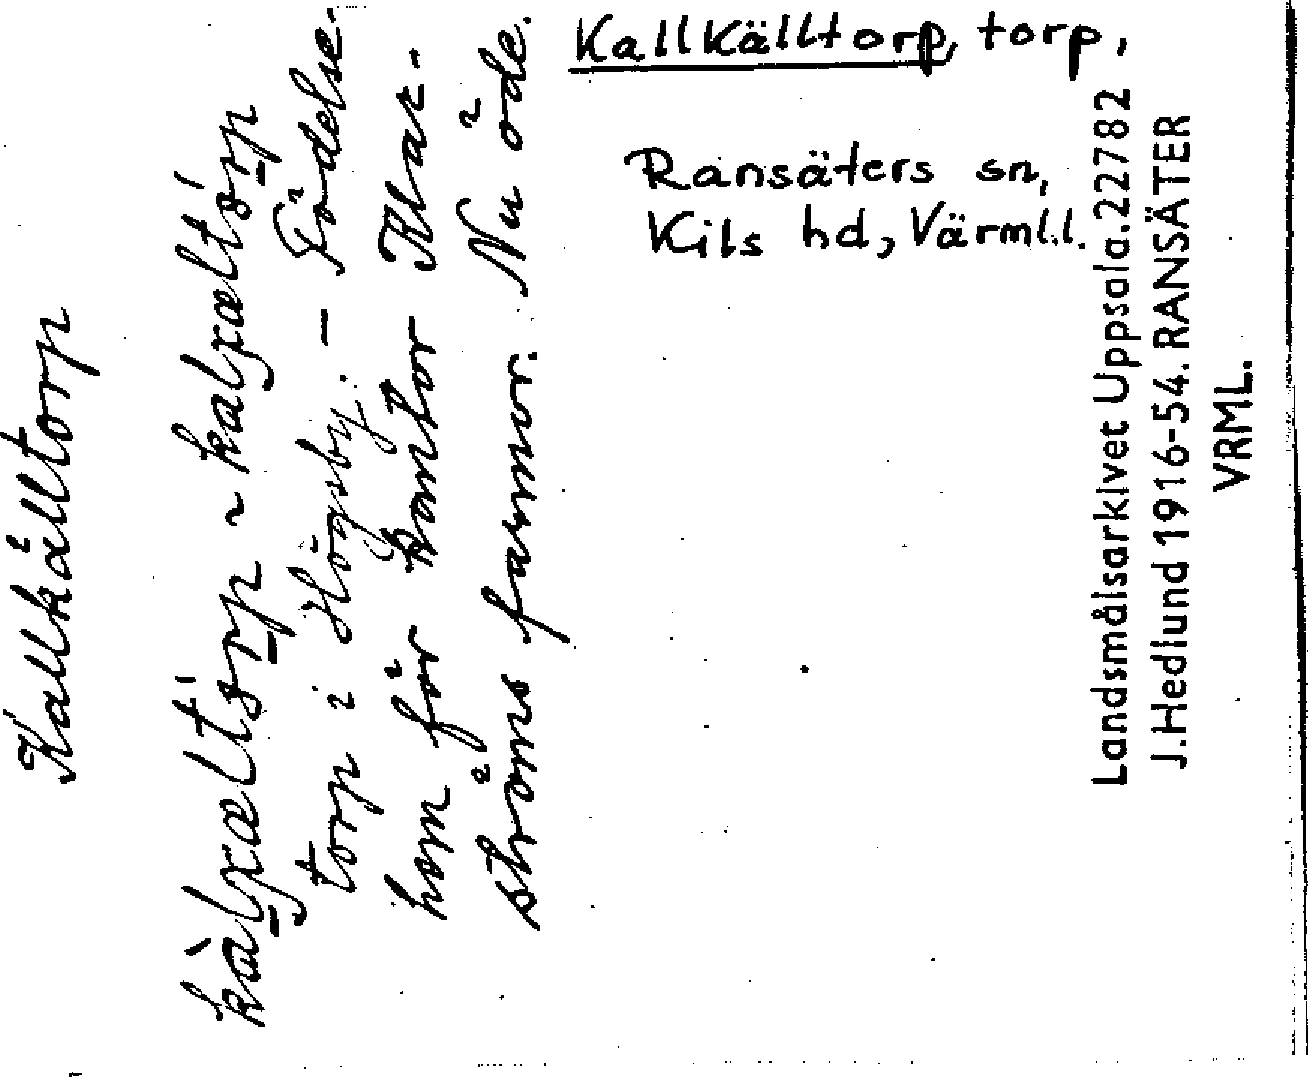 Kallkälltorp, torp,
Ransäters sn,
Kils hd, Värml.l.
Kallkälltorp
torp i Högsby. - Födelse-
hem för kantor Klar-
ströms farmor. Nu öde.
Landsmålsarkivet Uppsala. 22782
J. Hedlund 1916-54. RANSÄTER
VRML.